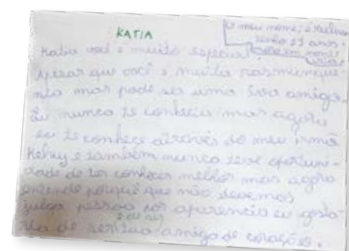 KATIA
o meu nome é
tenho 11 anos
Katia você é muito especial
apesar que você é muito
mas pode ser uma boa amiga.
Eu nunca te conhecia mas agora
eu te conhece através do meu irmã
e também nunca teve oportuni-
dade de ter conhecer melhor mas agora
entende porquê que não devemos
julga pessoa por aparencia eu gosta-
ria de ser sua amiga de coração.